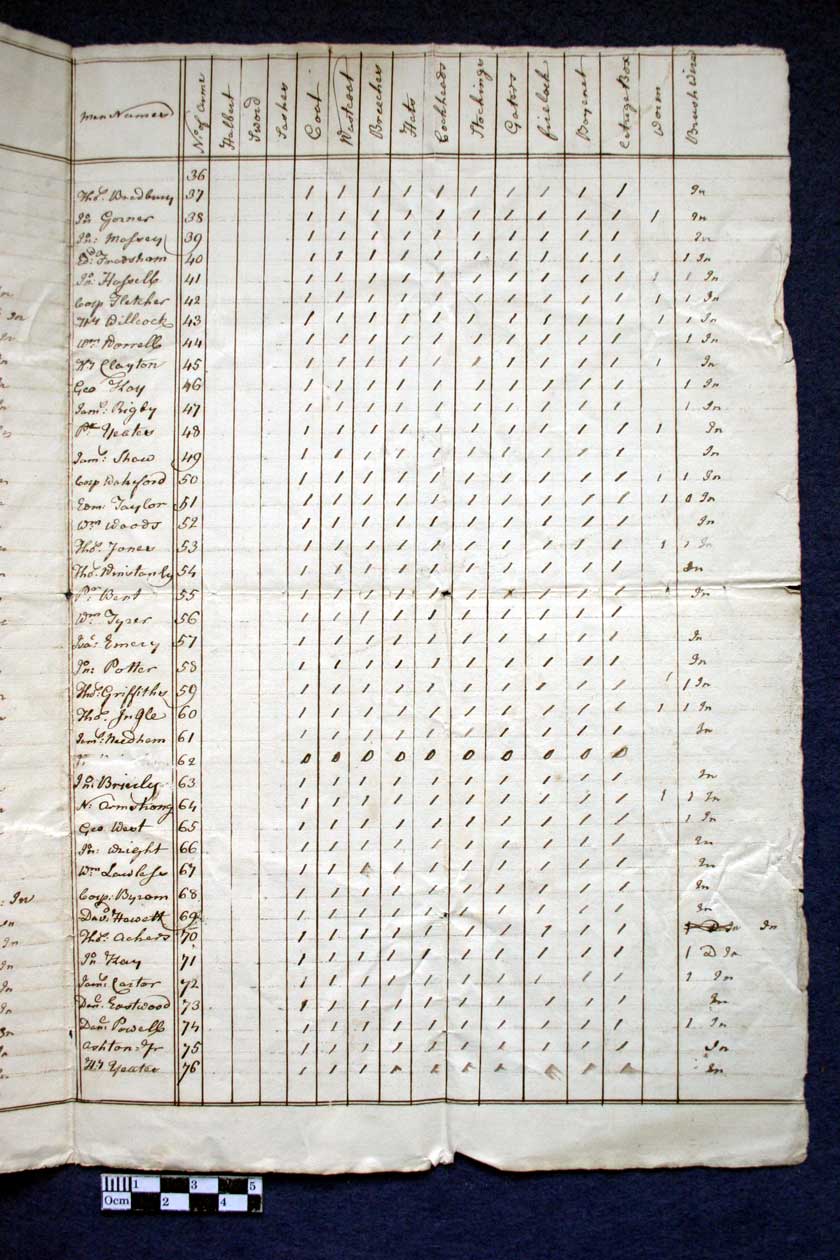 Men Names No of Arms Halbert Sword Sashes Coat Westcoat Breeches Hats Cockheads Stockings Gaters firelock Boyenet Worm Brush Wire
36
Thos. Bradbury 37 1 1 1 1 1 1 1 1 1 1 In
Jn Gorner 38 1 1 1 1 1 1 1 1 1 1 1 In
Jn: Massey 39 1 1 1 1 1 1 1 1 1 1 In
Ed. Frodsham 40 1 1 1 1 1 1 1 1 1 1 1 In
Jn Hassell 41 1 1 1 1 1 1 1 1 1 1 1 1 In
Corp Fletcher 42 1 1 1 1 1 1 1 1 1 1 1 1 In
Hy Billcock 43 1 1 1 1 1 1 1 1 1 1 1 1 In
Wm Worrell 44 1 1 1 1 1 1 1 1 1 1 1 In
Hy Clayton 45 1 1 1 1 1 1 1 1 1 1 1 In
Geo Kay 46 1 1 1 1 1 1 1 1 1 1 1 In
Jams: Rigby 47 1 1 1 1 1 1 1 1 1 1 1 In
Pr Yeates 48 1 1 1 1 1 1 1 1 1 1 1 In
Jams: Shaw 49 1 1 1 1 1 1 1 1 1 1 In
Corp Wakeford 50 1 1 1 1 1 1 1 1 1 1 1 1 In
Edm: Taylor 51 1 1 1 1 1 1 1 1 1 1 1 0 In
Wm Woods 52 1 1 1 1 1 1 1 1 1 1 In
Thos. Jones 53 1 1 1 1 1 1 1 1 1 1 1 1 In
Thos. Winstanly 54 1 1 1 1 1 1 1 1 1 1 In
Pr. Bent 55 1 1 1 1 1 1 1 1 1 1 In
Wm Tyrer 56 1 1 1 1 1 1 1 1 1 1
Isac: Emery 57 1 1 1 1 1 1 1 1 1 1 In
Jn: Potter 58 1 1 1 1 1 1 1 1 1 1 In
Thos. Griffiths 59 1 1 1 1 1 1 1 1 1 1 1 1 In
Thos. Ingle 60 1 1 1 1 1 1 1 1 1 1 1 1 In
Jams: Needham 61 1 1 1 1 1 1 1 1 1 1 In
62 0 0 0 0 0 0 0 0 0 0
Jn: Brierly 63 1 1 1 1 1 1 1 1 1 1 In
N. Armstrong 64 1 1 1 1 1 1 1 1 1 1 1 1 In
Geo West 65 1 1 1 1 1 1 1 1 1 1 1 In
Jn: Wright 66 1 1 1 1 1 1 1 1 1 1 In
Wm Lawless 67 1 1 1 1 1 1 1 1 1 1 In
Corp: Byrom 68 1 1 1 1 1 1 1 1 1 1 In
Davd. Hewett 69 1 1 1 1 1 1 1 1 1 1 In
Thos. Achers 70 1 1 1 1 1 1 1 1 1 1 In
Jn Kay 71 1 1 1 1 1 1 1 1 1 1 1 D In
Jams: Carter 72 1 1 1 1 1 1 1 1 1 1 1 In
Danl: Eastwood 73 1 1 1 1 1 1 1 1 1 1 In
Danl: Powell 74 1 1 1 1 1 1 1 1 1 1 1 In
Ashton: Jr 75 1 1 1 1 1 1 1 1 1 1 In
Hy Yeates 76 1 1 1 1 1 1 1 1 1 1 In
0cm 1 2 3 4 5